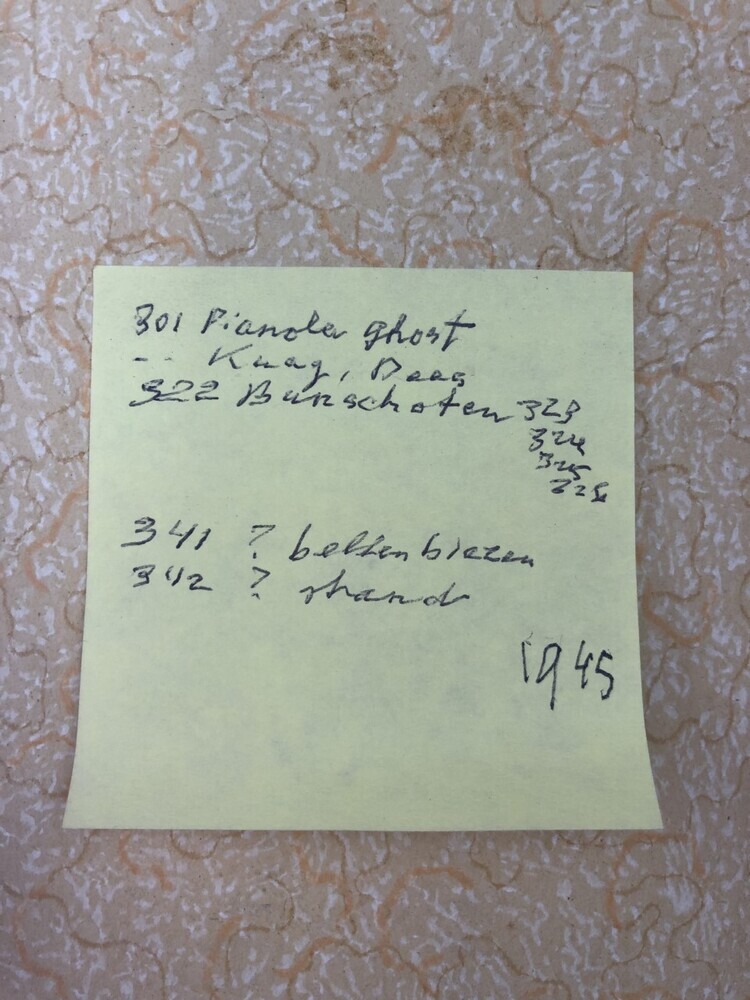 301 Pianola ghost
-- Kaag, Daag
322 Bunschoten 323
324
325
326
341 ? bellenblazen
342 ? strand
1945